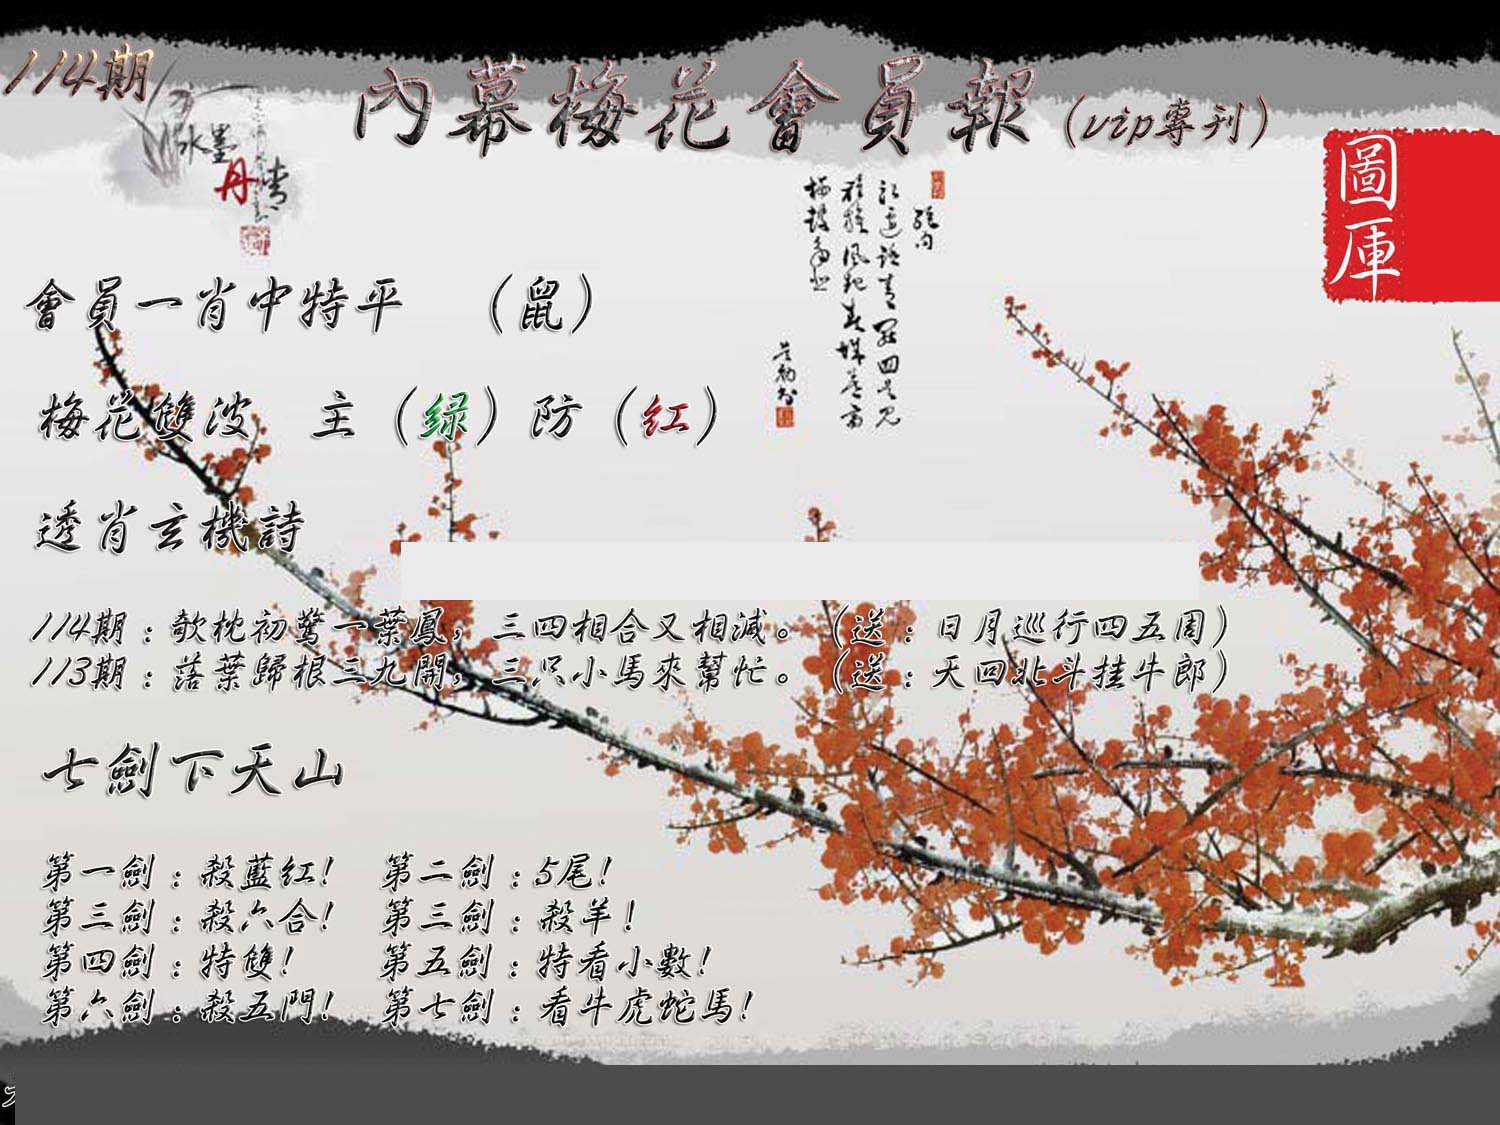 114期
內幕梅花會員報（vip專刊）
水墨
丹青
圖庫
會員一肖中特平　（鼠）
梅花雙波　主（绿）防（红）
透肖玄機詩
114期：欹枕初驚一葉鳳，三四相合又相減。（送：日月巡行四五周）
113期：落葉歸根三九開，三只小馬來幫忙。（送：天回北斗挂牛郎）
七劍下天山
第一劍：殺藍红！　第二劍：5尾！
第三劍：殺六合！　第三劍：殺羊！
第四劍：特雙！　第五劍：特看小數！
第六劍：殺五門！　第七劍：看牛虎蛇馬！